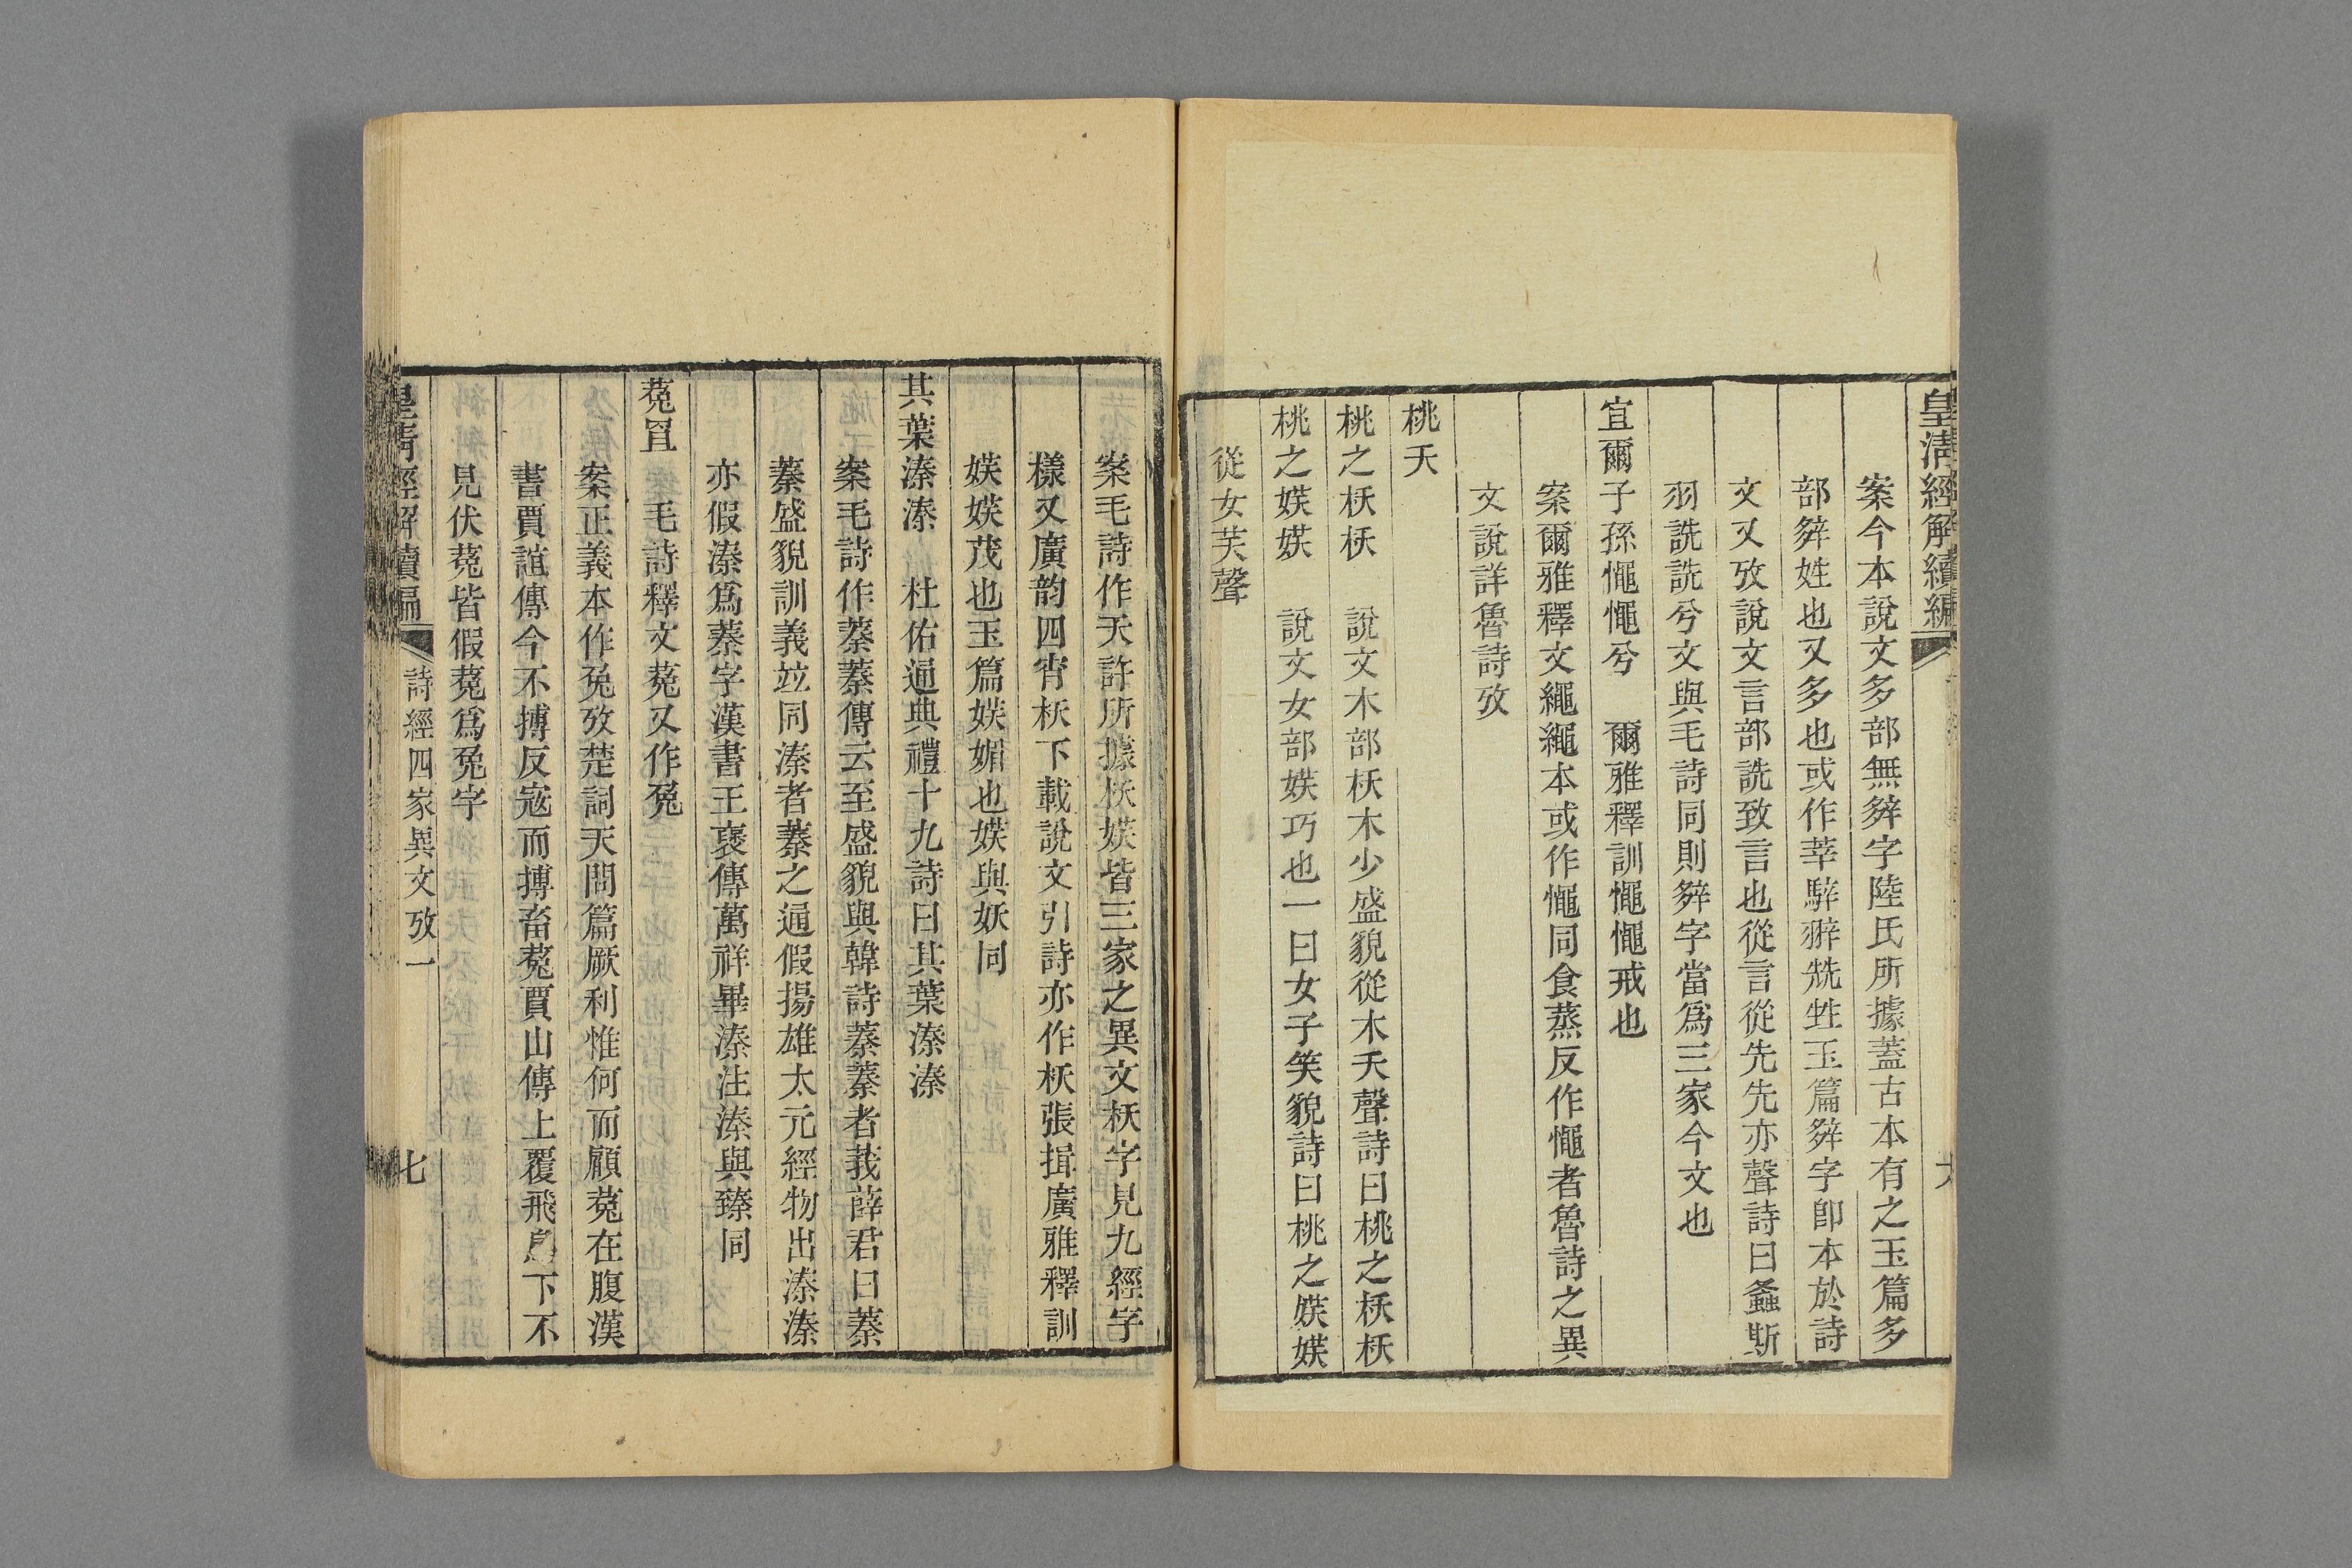 皇清經解續編
六
案今本說文多部無㚔字陸氏所據蓋古本有之玉篇多
部㚔姓也又多也或作莘駪㜪兟甡玉篇㚔字卽本於詩
文又攷說文言部詵致言也從言從先先亦聲詩曰螽斯
羽詵詵兮文與毛詩同則㚔字當爲三家今文也
宜爾子孫憴憴兮　爾雅釋訓憴憴戒也
案爾雅釋文繩繩本或作憴同食蒸反作憴者魯詩之異
文說詳魯詩攷
桃夭
桃之枖枖　說文木部枖木少盛貌從木夭聲詩曰桃之枖枖
桃之媄媄　說文女部媄巧也一曰女子笑貌詩曰桃之媄媄
從女芙聲
案毛詩作夭許所據枖媄皆三家之異文枖字見九經字
樣又廣韵四宵枖下載說文引詩亦作枖張揖廣雅釋訓
媄媄茂也玉篇媄媚也媄與妖同
其葉溱溱　杜佑通典禮十九詩曰其葉溱溱
案毛詩作蓁蓁傳云至盛貌與韓詩蓁蓁者莪薛君曰蓁
蓁盛貌訓義竝同溱者蓁之通假揚雄太元經物出溱溱
亦假溱爲蓁字漢書王褒傳萬祥畢溱注溱與臻同
菟罝　毛詩釋文菟又作兔
案正義本作兔攷楚詞天問篇厥利惟何而顧菟在腹漢
書賈誼傳今不搏反寇而搏畜菟賈山傳上覆飛鳥下不
見伏菟皆假菟爲兔字
皇清經解續編
詩經四家異文攷一
七